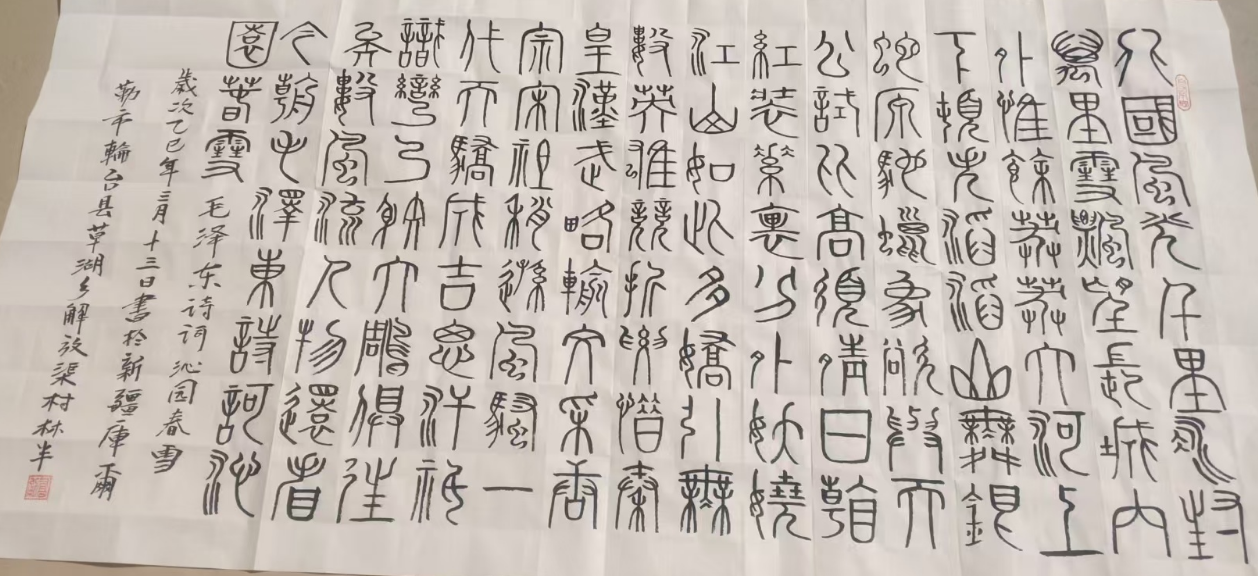 北國風光千里冰封
萬里雪飄望長城內
外惟餘莽莽大河上
下頓失滔滔山舞銀
蛇原馳蠟象欲與天
公試比高須晴日看
紅裝素裹分外妖嬈
江山如此多嬌引無
數英雄競折腰惜秦
皇漢武略輸文采唐
宗宋祖稍遜風騷一
代天驕成吉思汗祇
識彎弓射大雕俱往
矣數風流人物還看
今朝毛澤東詩詞沁
園春雪
毛泽东诗词沁园春雪
歲次乙巳年三月十三日書於新疆庫爾
勒市輪台县草湖乡解放渠村林半